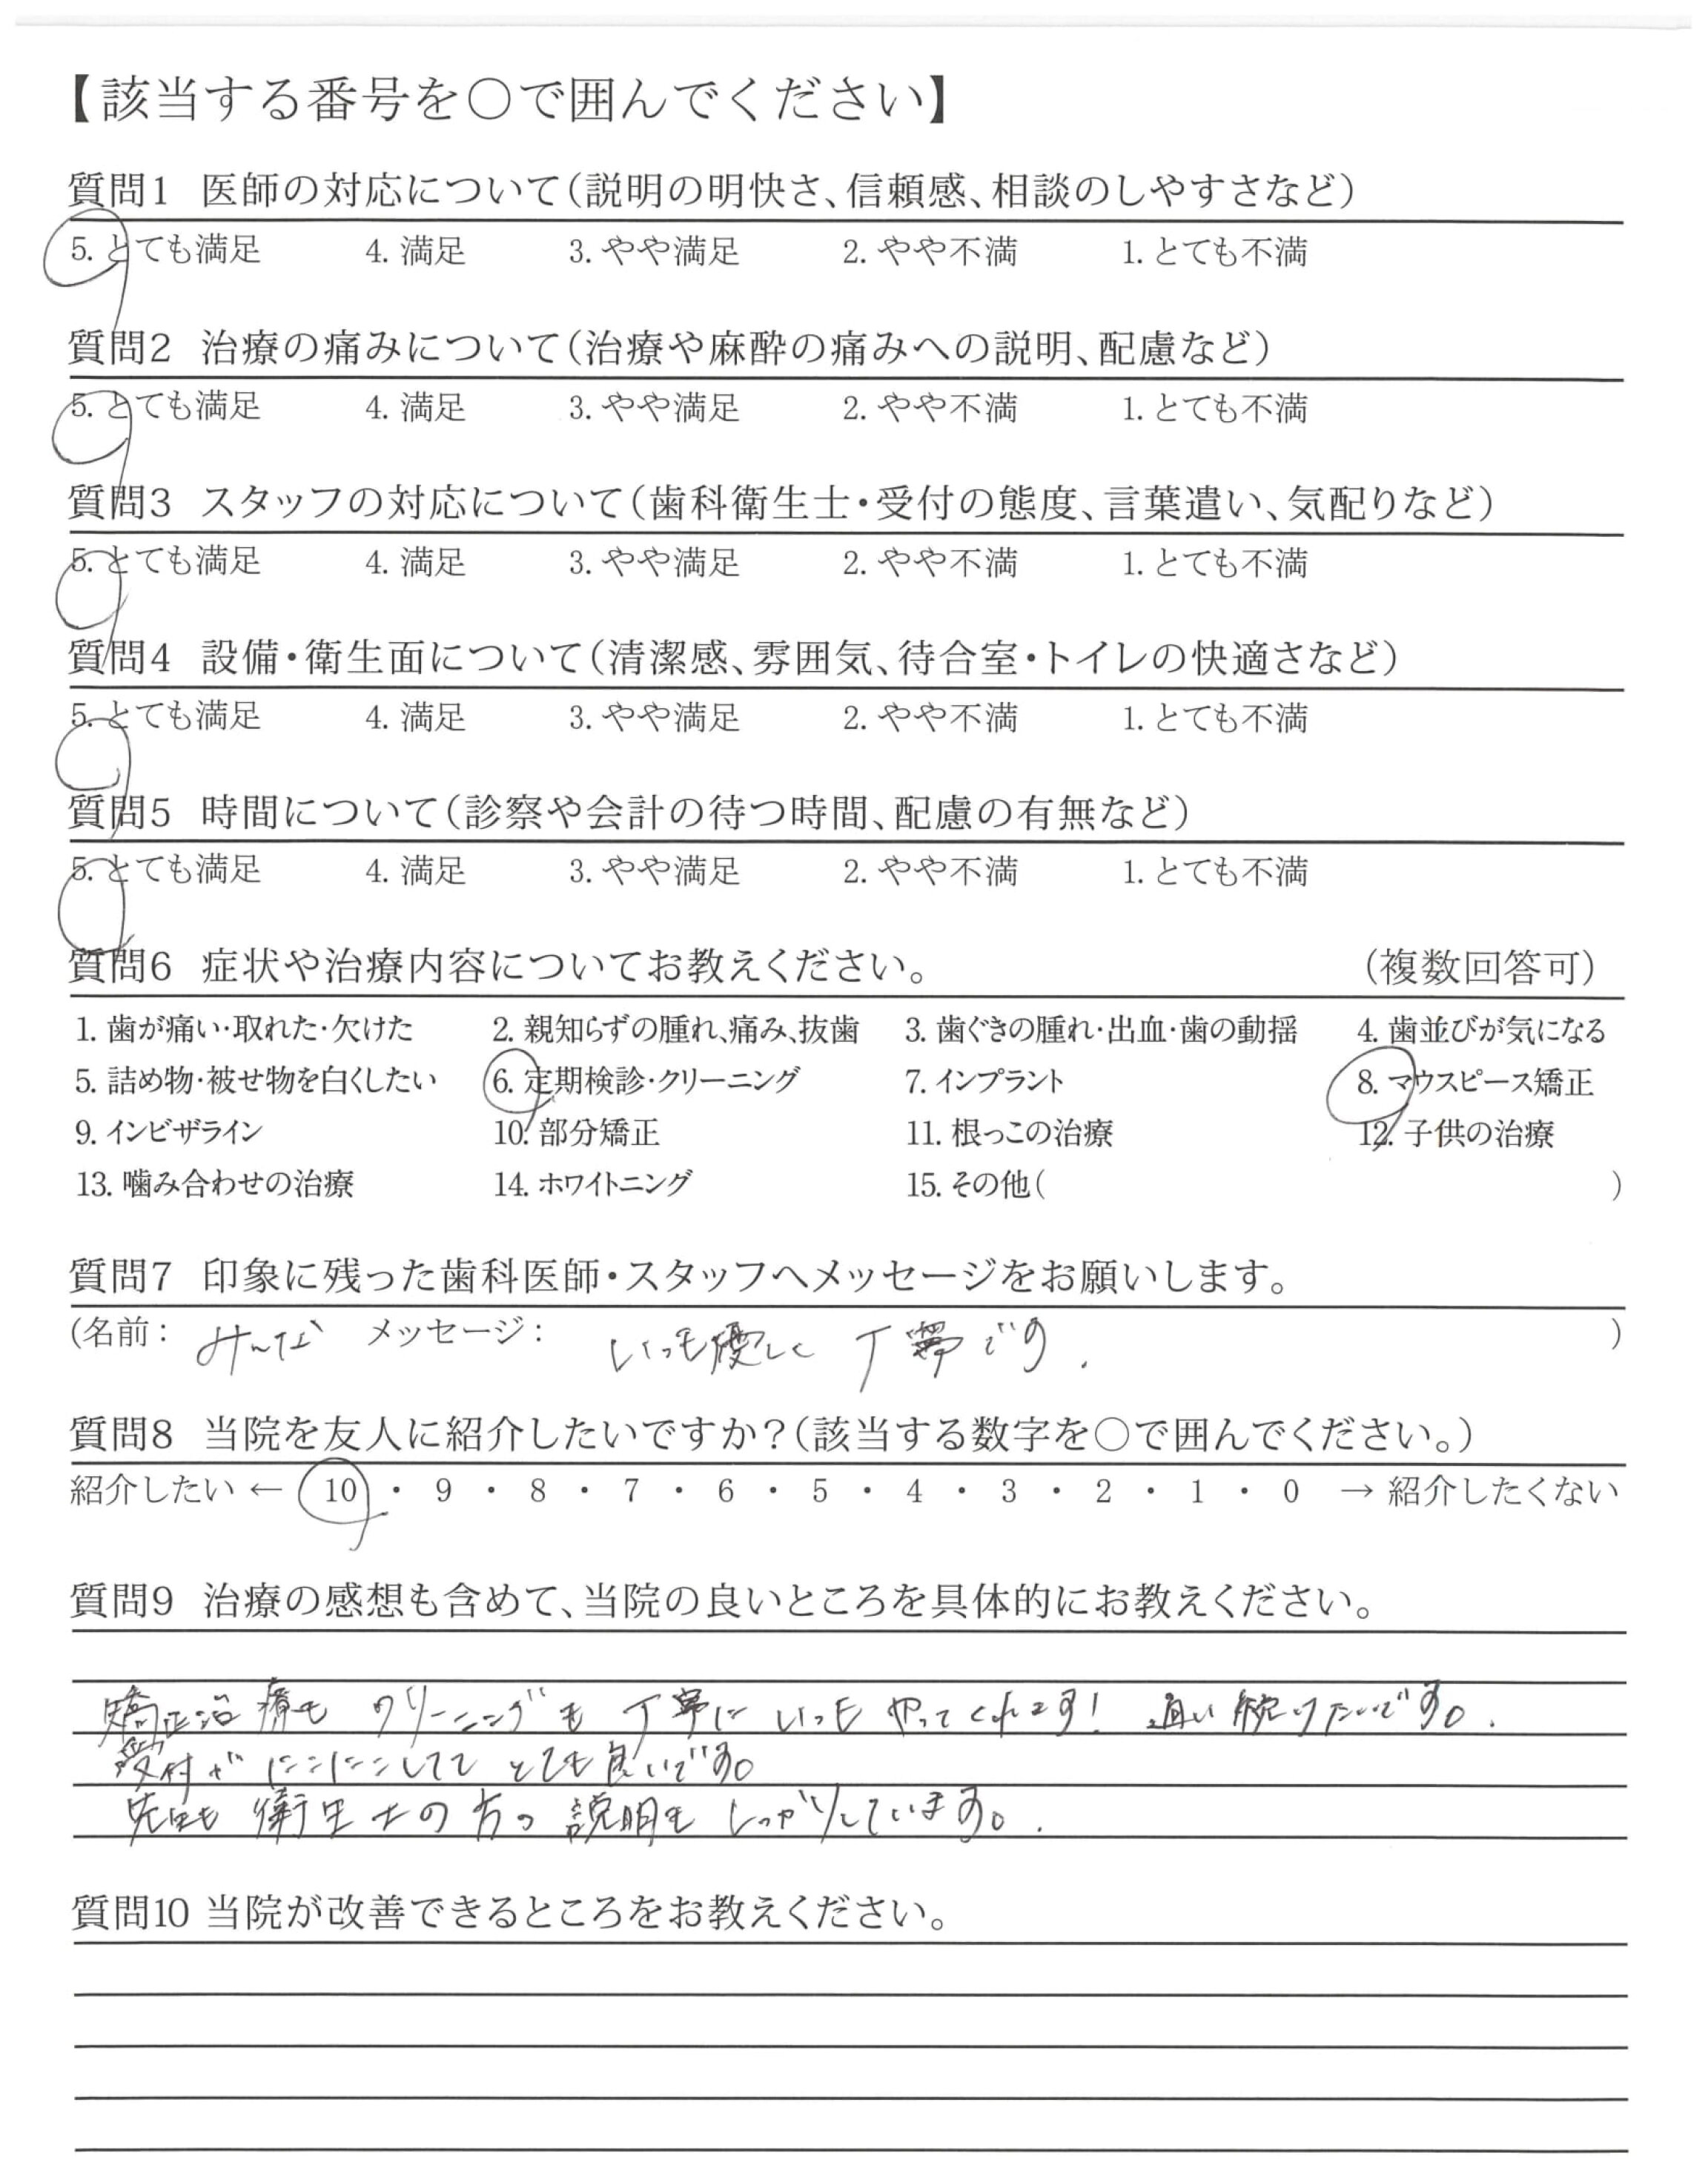 【該当する番号を○で囲んでください】
質問1 医師の対応について(説明の明快さ、信頼感、相談のしやすさなど)
5. とても満足 4. 満足 3. やや満足 2. やや不満 1. とても不満
質問2 治療の痛みについて(治療や麻酔の痛みへの説明、配慮など)
5. とても満足 4. 満足 3. やや満足 2. やや不満 1. とても不満
質問3 スタッフの対応について(歯科衛生士・受付の態度、言葉遣い、気配りなど)
5. とても満足 4. 満足 3. やや満足 2. やや不満 1. とても不満
質問4 設備・衛生面について(清潔感、雰囲気、待合室・トイレの快適さなど)
5. とても満足 4. 満足 3. やや満足 2. やや不満 1. とても不満
質問5 時間について(診察や会計の待つ時間、配慮の有無など)
5. とても満足 4. 満足 3. やや満足 2. やや不満 1. とても不満
質問6 症状や治療内容についてお教えください。 (複数回答可)
1. 歯が痛い・取れた・欠けた 2. 親知らずの腫れ、痛み、抜歯 3. 歯ぐきの腫れ・出血・歯の動揺 4. 歯並びが気になる
5. 詰め物・被せ物を白くしたい 6. 定期検診・クリーニング 7. インプラント 8. マウスピース矯正
9. インビザライン 10. 部分矯正 11. 根っこの治療 12. 子供の治療
13. 噛み合わせの治療 14. ホワイトニング 15. その他( )
質問7 印象に残った歯科医師・スタッフへメッセージをお願いします。
(名前: みんな メッセージ: いつも優しく 丁寧です. )
質問8 当院を友人に紹介したいですか?(該当する数字を○で囲んでください。)
紹介したい ← 10 ・ 9 ・ 8 ・ 7 ・ 6 ・ 5 ・ 4 ・ 3 ・ 2 ・ 1 ・ 0 → 紹介したくない
質問9 治療の感想も含めて、当院の良いところを具体的にお教えください。
矯正治療も クリーニングも 丁寧に いつも やってくれます! 通い続けたいです。
受付が にこにこしてて とても良いです。
先生も 衛生士の方の 説明も しっかりしています。
質問10 当院が改善できるところをお教えください。